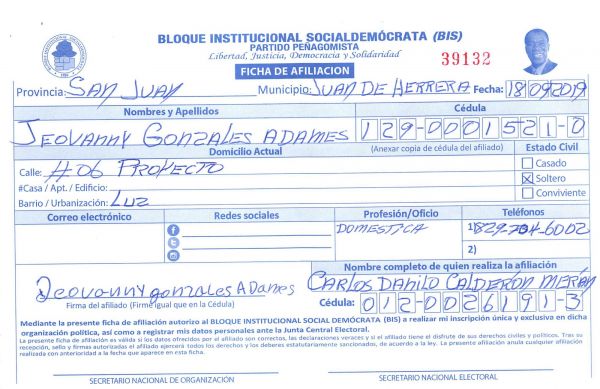 BLOQUE INSTITUCIONAL SOCIALDEMÓCRATA (BIS)
PARTIDO PEÑAGOMISTA
Libertad, Justicia, Democracia y Solidaridad
39132
FICHA DE AFILIACION
Provincia: SAN JUAN Municipio: JUAN DE HERRERA Fecha: 18/09/2019
Nombres y Apellidos Cédula
JEOVANNY GONZALES ADAMES 129-0001521-0
Domicilio Actual (Anexar copia de cédula del afiliado) Estado Civil
Calle: #06 PROYECTO Casado
#Casa / Apt. / Edificio: X Soltero
Barrio / Urbanización: LUZ Conviviente
Correo electrónico Redes sociales Profesión/Oficio Teléfonos
DOMESTICA 1) 829-704-6002
2)
Nombre completo de quien realiza la afiliación
Jeovanny gonzales ADames CARLOS DANILO CALDERÓN MERÁN
Firma del afiliado (Firme igual que en la Cédula) Cédula: 012-0026191-3
Mediante la presente ficha de afiliación autorizo al BLOQUE INSTITUCIONAL SOCIAL DEMÓCRATA (BIS) a realizar mi inscripción única y exclusiva en dicha
organización política, así como a registrar mis datos personales ante la Junta Central Electoral.
La presente ficha de afiliación es válida si los datos ofrecidos por el afiliado son correctos, las declaraciones veraces y si el afiliado tiene el disfrute de sus derechos civiles y políticos. Tras su
recepción, sello y firmas autorizadas el afiliado ejercerá todos los derechos y los deberes estatutariamente sancionados, de acuerdo a la ley. La presente afiliación anula cualquier afiliación
realizada con anterioridad a la fecha que aparece en esta ficha.
SECRETARIO NACIONAL DE ORGANIZACIÓN SECRETARIO NACIONAL ELECTORAL